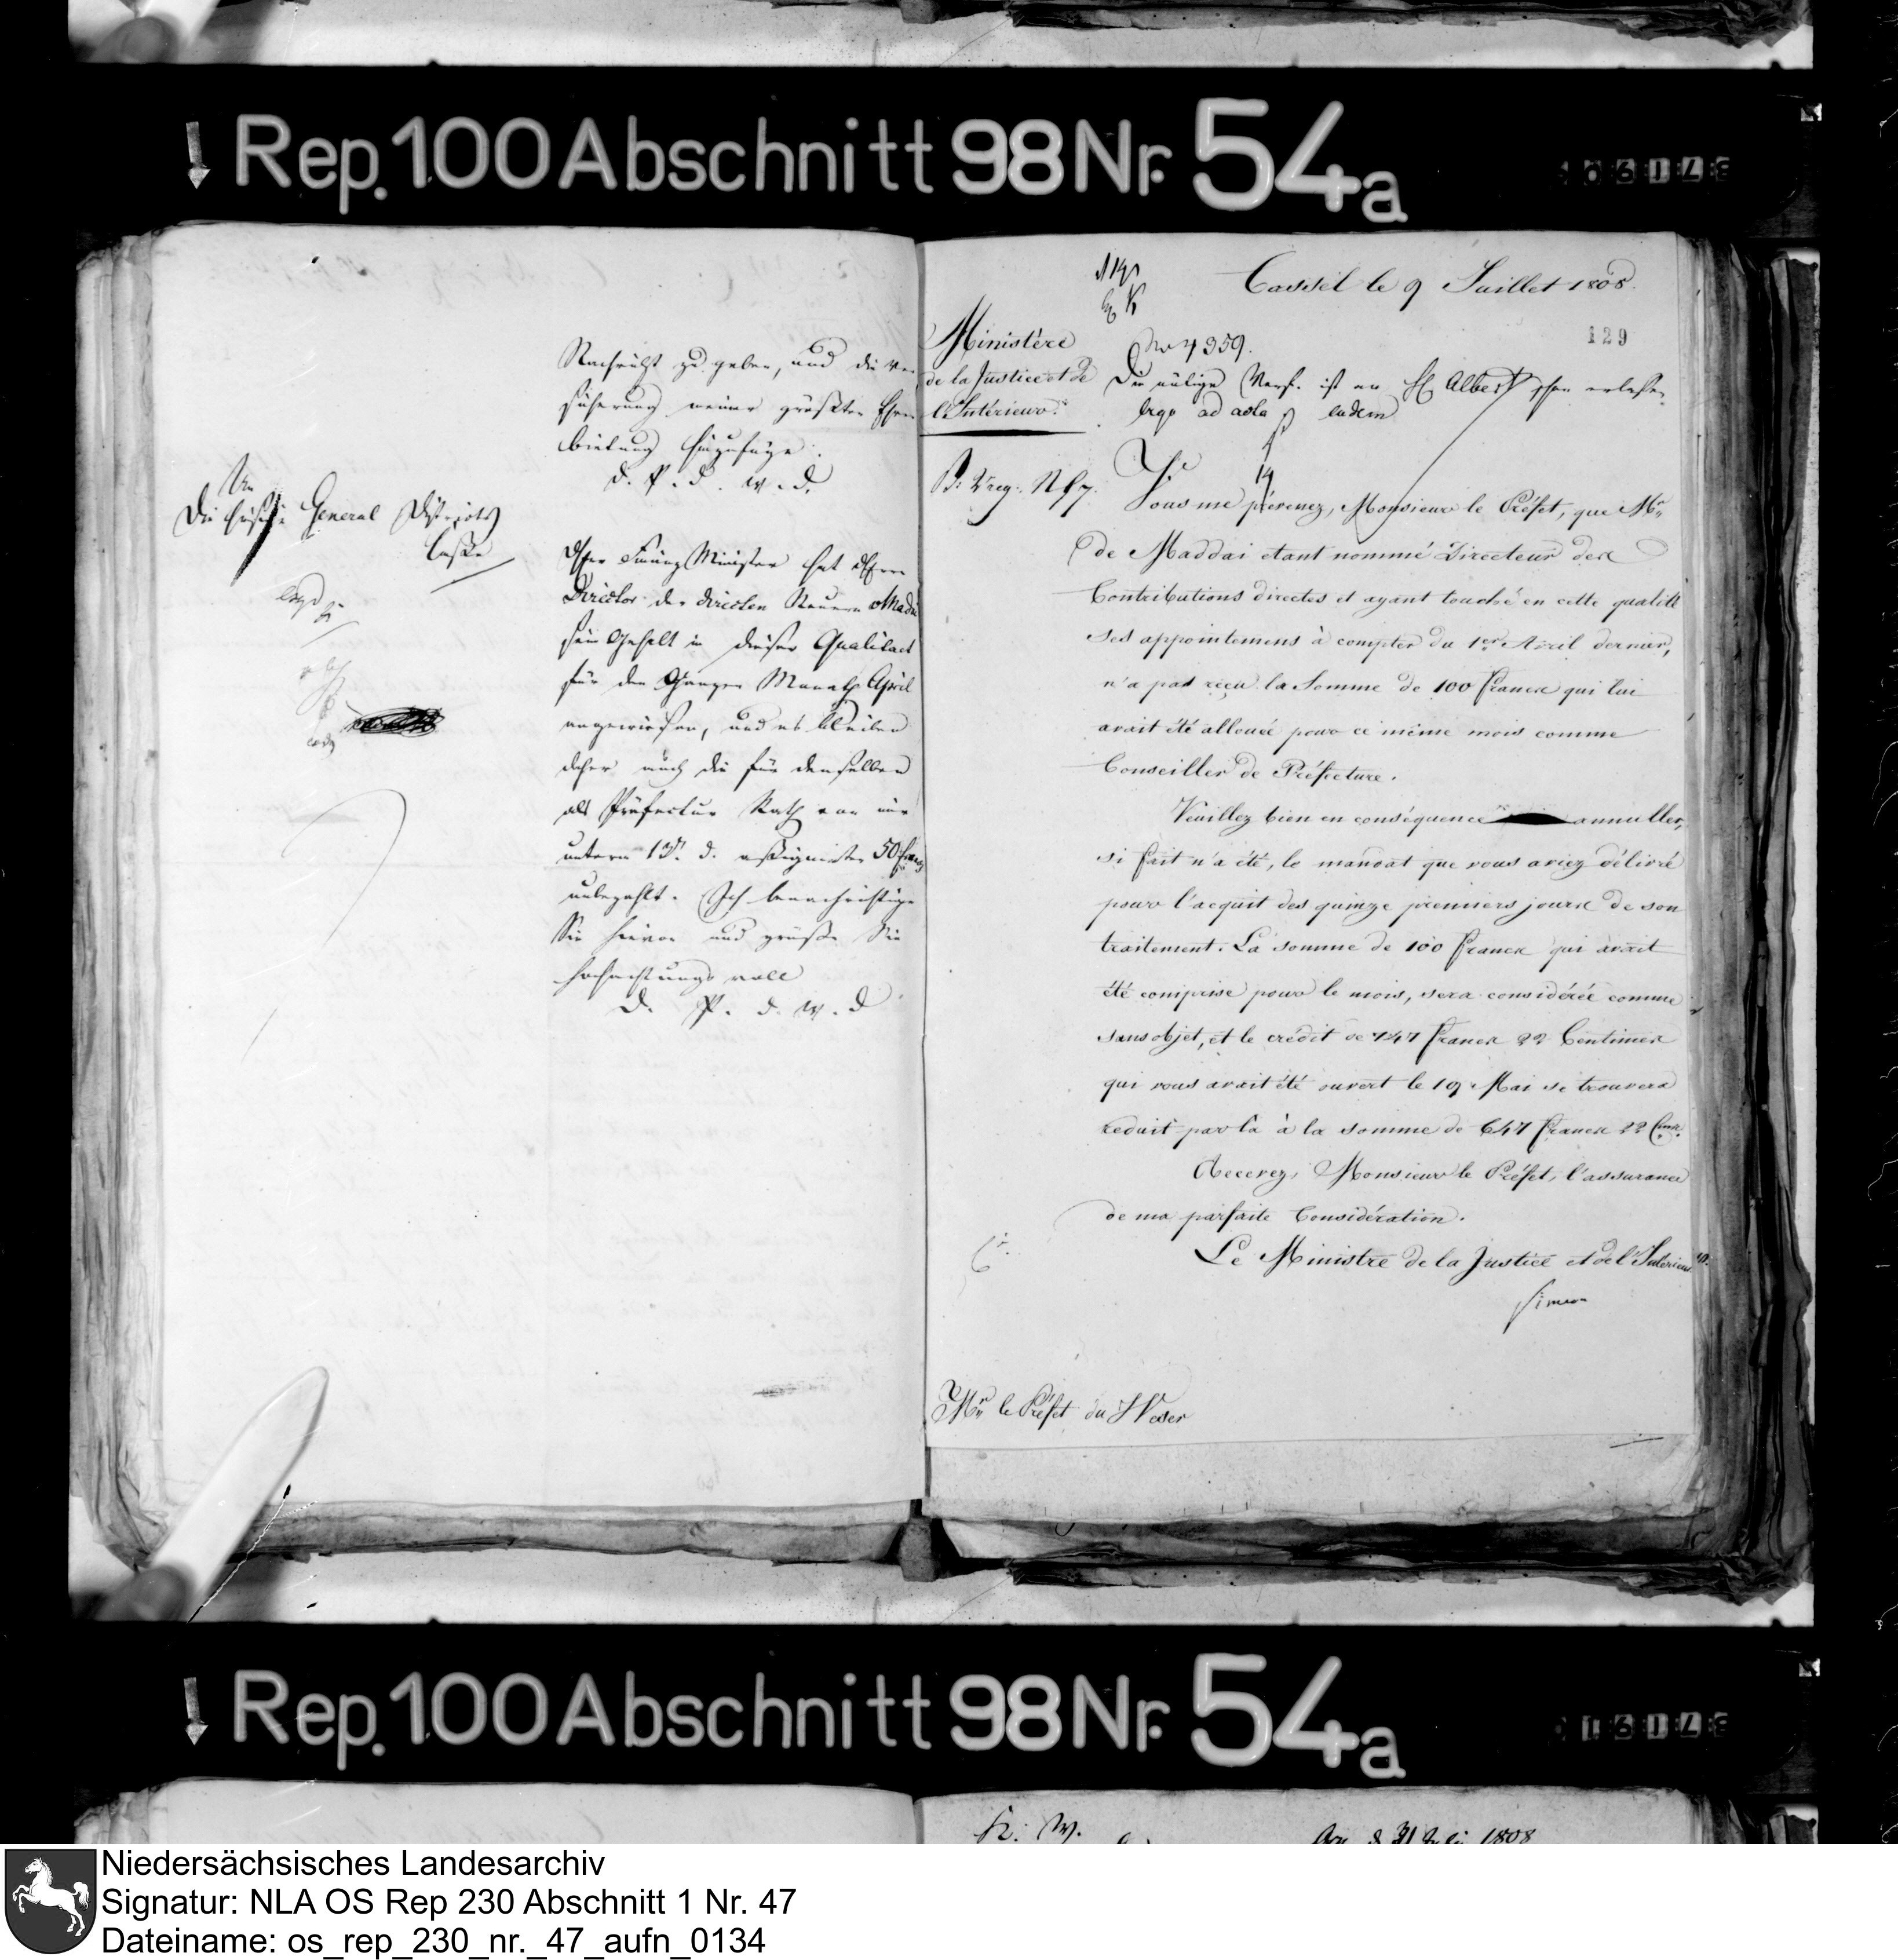 Rep. 100 Abschnitt 98 Nr. 54a
Nachricht zu geben, und die Ver
sicherung meiner größten Ehrer
bietung hinzufüge.
d. P. d. W. D.
An
Die hiesige General Districts
Casse
Der Finanz Minister hat dem Herrn
Director der directen Steuern Madai
sein Gehalt in dieser Qualitaet
für den Ganzen Monath April
angewiesen, und es bleiben
daher auch die für denselben
als Präfectur Rath von mir
unterm 13t. d. assignirten 50 francs
unbezahlt. Ich benachrichtige
Sie hievon und grüße Sie
hochachtungsvoll
D. P. d. W. D.
Cassel le 9 Juillet 1808.
129
Ministère
de la Justice et de
l'Intérieur.
No 4359.
Die nötige Verf. ist an H. Albers schon erlassen
ergo ad acta eodem
Vous me prévenez, Monsieur le Préfet, que Mr.
de Maddai etant nommé Directeur des
Contributions directes et ayant touché en cette qualité
ses appointemens à compter du 1er Avril dernier,
n'a pas reçu la Somme de 100 francs qui lui
avait été allouée pour ce même mois comme
Conseiller de Préfecture.
Veuillez bien en conséquence annuller,
si fait n'a été, le mandat que vous aviez délivré
pour l'acquit des quinze premiers jours de son
traitement. La somme de 100 francs qui avait
été comprise pour le mois, sera considérée comme
sans objet, et le crédit de 747 francs 22 Centimes
qui vous avait été ouvert le 19 Mai se trouvera
reduit par la à la somme de 647 francs 22 Cmes.
Recevez, Monsieur le Préfet, l'assurance
de ma parfaite Considération.
Le Ministre de la Justice et de l'Intérieur.
Simeon
Mr. le Préfet du Weser
Rep. 100 Abschnitt 98 Nr. 54a
K. W.
1808
Niedersächsisches Landesarchiv
Signatur: NLA OS Rep 230 Abschnitt 1 Nr. 47
Dateiname: os_rep_230_nr._47_aufn_0134